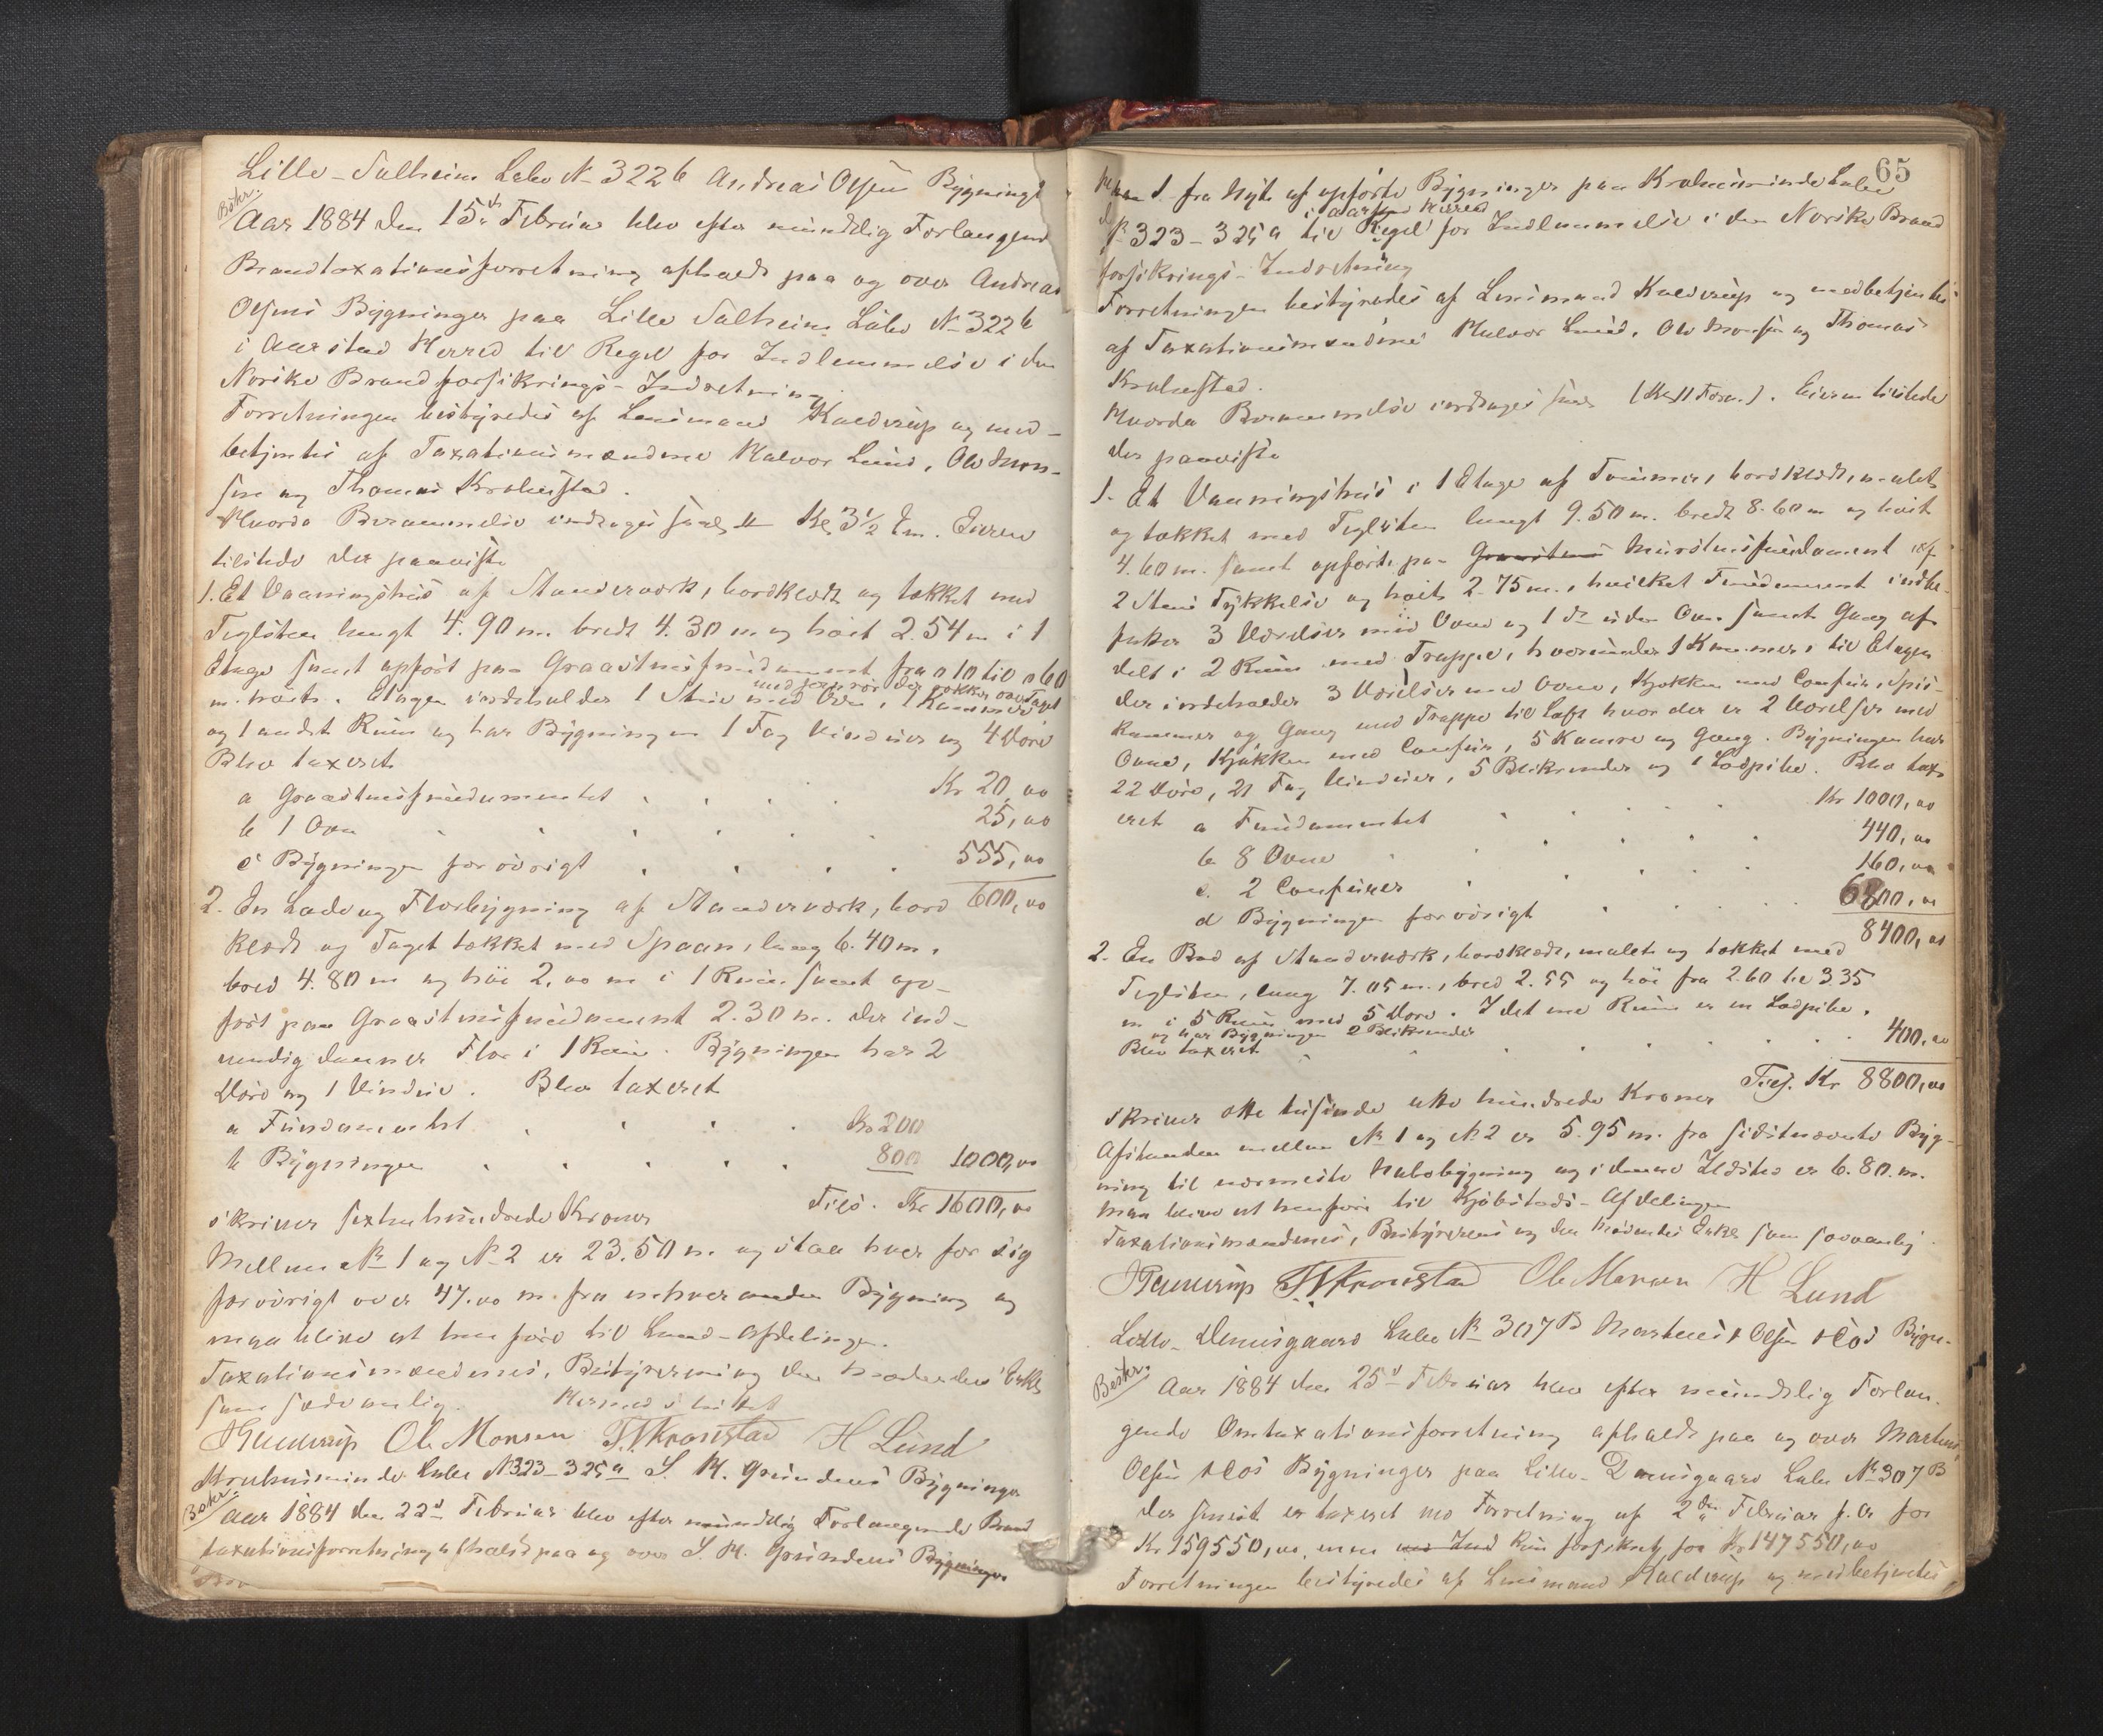 Lille-Solheim Løbe No 322 b Andreas Olsens Bygninger
Beskr.
Aar 1884 den 15de Februar blev efter mundtlig Forlangende
Brandtaxationsforretning afholdt paa og over Andreas
Olsens Bygninger paa Lille Solheim Løbe No 322 b
i Aarstad Herred til Regel for Indlemmelse i den
Norske Brandforsikrings-Indretning
Forretningen bestyredes af Lensmand Kalderup og med-
betjentes af Taxationsmændene Halvor Lund, Ole Mon-
sen og Thomas Kronstad.
Hvorda Berammelse indtages saal. Kl. 3 1/2 Em. Eieren
tilstede der paaviste
1. Et Vaaningshus af Standerværk, bordklædt og tækket med
Teglsten langt 4.90 m. bredt 4.30 m og høit 2.54 m i 1
Etage samt opført paa Graastensfundament fra 0.10 til 0.60
med jernrør der rækker over Taget
m. høit. Etagen indeholder 1 Stue med Ovn, 1 Kammer
og 1 andet Rum og har Bygningen 1 Fag Vinduer og 4 Døre
Blev taxeret
a Graastensfundamentet Kr 20,00
b 1 Ovn 25,00
c Bygningen forøvrigt 555,00
600,00
2. En Lade og Florbygning af Standerværk, bord
klædt og Taget tækket med Spaan, lang 6.40 m,
bred 4.80 m og høi 2,00 m i 1 Rum samt op-
ført paa Graastensfundament 2.30 m. der ind-
vendig danner Flor i 1 Rum. Bygningen har 2
Døre og 1 Vindue. Blev taxeret
a Fundamentet Kr 200
b Bygningen 800 1000,00
Tils. Kr 1600,00
skriver sexten hundrede Kroner
Mellem No 1 og No 2 er 23.50 m. og staa hver for sig
forøvrigt over 47.00 m fra enhver anden Bygning og
maa blive at henføre til Land-Afdelingen.
Taxationsmændenes, Bestyrerens og den mødendes Enkl
som sædvanlig. Hermed sluttet
Kalderup Ole Monsen T.T. Kronstad H Lund
Krohnsminde Løbe No 323-325 a S. H. Grundens Bygninger
Beskr.
Aar 1884 den 22d Februar blev efter mundtlig Forlangende Brand
taxationsforretning afholdt paa og over S. H. Grundens Bygninger
65
fra Nyt af opførte Bygninger paa Krohnsminde Løbe
i Aarstad Herred
No 323-325 a til Regel for Indlemmelse i den Norske Brand
forsikrings-Indretning
Forretningen bestyredes af Lensmand Kalderup og medbetjentes
af Taxationsmændene Halvor Lund, Ole Monsen og Thomas
Kronstad.
Hvorda Berammelse indtages (Kl. 11 Form.). Eieren tilstede
der paaviste
1. Et Vaaningshus i 1 Etage af Tømmer, bordklædt, malet
og tækket med Teglsten langt 9.50 m. bredt 8.60 m og høit
4.60 m. samt opført paa Graastens Murstensfundament af
2 Stens Tykkelse og høit 2.75 m., hvilket Fundament indbe-
fatter 3 Værelser med Ovne og 1 do uden Ovn samt Gang af
delt i 2 Rum med Trappe, hvorunder 1 Kammer, til Etagen
der indeholder 3 Værelser med Ovne, Kjøkken med Comfur, Spis-
kammer og Gang med Trappe til Loft hvor der er 2 Værelser med
Ovne, Kjøkken med Comfur, 5 Kamre og Gang. Bygningen har
22 Døre, 21 Fag Vinduer, 5 Blikrender og 1 Lodpibe. Blev tax-
eret a Fundamentet Kr 1000,00
b 8 Ovne 440,00
c. 2 Comfurer 160,00
d Bygningen forøvrigt 6800,00
8400,00
2. En Bod af Standerværk, bordklædt, malet og tækket med
Teglsten, lang 7.05 m., bred 2.55 og høi fra 2.60 til 3.35
m i 5 Rum med 5 Døre. I det ene Rum er en Lodpibe.
og har Bygningen 2 Blikrender
Blev taxeret 400,00
Tils. Kr 8800,00
skriver otte tusinde otte hundrede Kroner
Afstanden mellem No 1 og No 2 er 5.95 m. fra sidstnævnte Byg-
ning til nærmeste Nabobygning og i denne Ildsted er 6.80 m.
Maa blive at henføre til Kjøbstads-Afdelingen
Taxationsmændenes, Bestyrerens og den mødendes Enkl som sædvanlig.
Kalderup T.T. Kronstad Ole Monsen H Lund
Lille-Damsgaard Løbe No 307 B Martens Olsen & Cos Bygn.
Beskr.
Aar 1884 den 25d Februar blev efter mundtlig Forlan-
gende Omtaxationsforretning afholdt paa og over Martens
Olsen & Cos Bygninger paa Lille-Damsgaard Løbe No 307 B
der senest er taxeret ved Forretning af 2den Februar f. A. for
Kr 159550,00, men kun forsikret for Kr 147550,00
Forretningen bestyredes af Lensmand Kalderup og medbetjentes